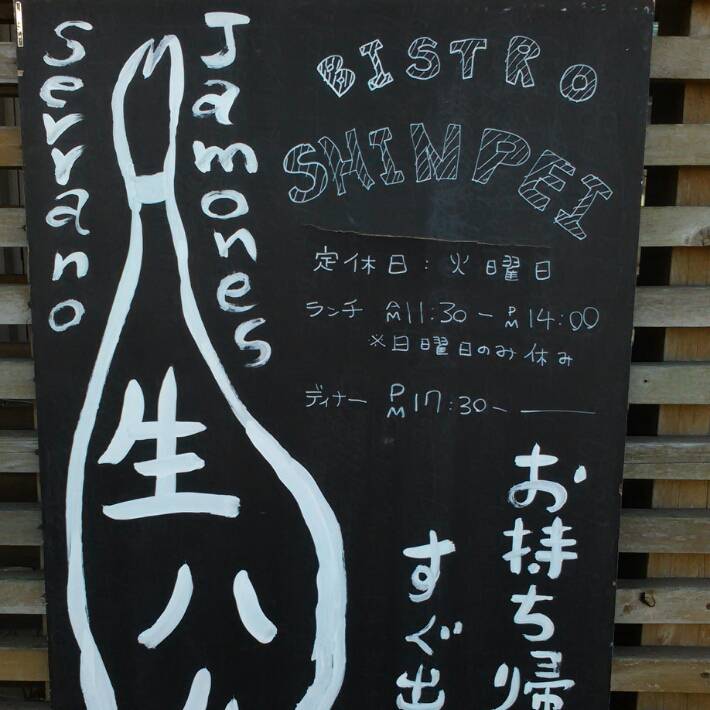 Serrano
Jamones
BISTRO
SHINPEI
定休日：火曜日
ランチ AM11:30－PM14:00
※日曜日のみ休み
ディナー PM17:30－
お持ち帰
すぐ出
生ハ